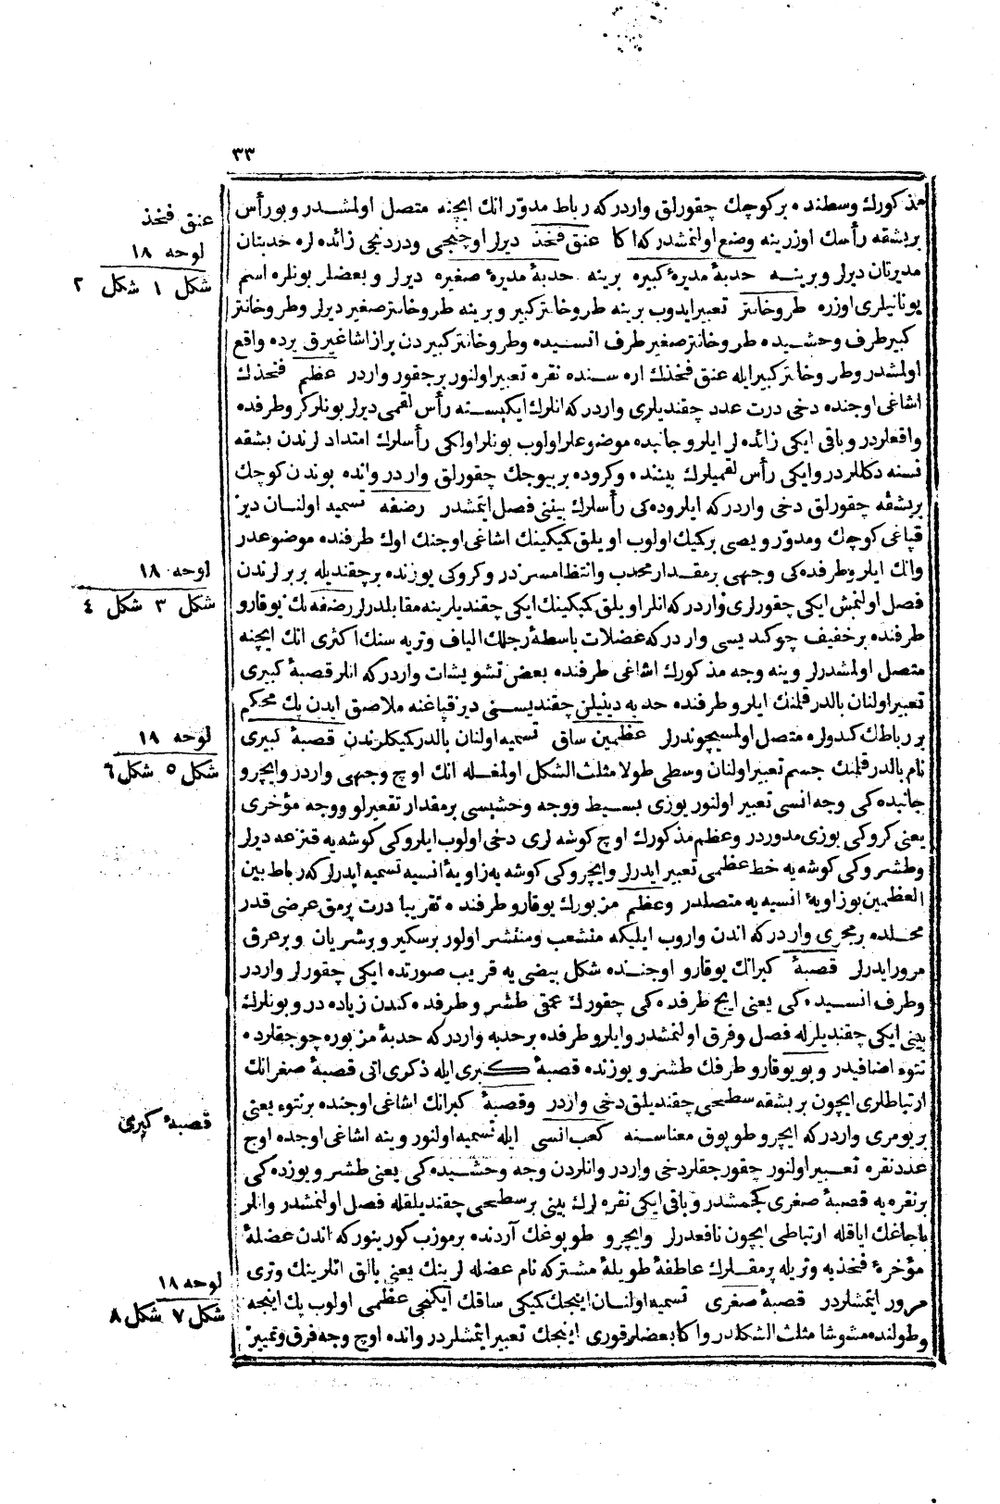 ٣٣
مذكورك وسطنده بركوچك چقورلق واردركه رباط مدوّر انك ايچنه متصل اولمشدر وبورأس
بربشقه رأسك اوزرينه وضع اولنمشدركه اكا عنق فخذ ديرلر اوچنجى ودردنجى زائده لره حدبتان
مديرتان ديرلر وبرينه حدبۀ مديرۀ كبيره برينه حدبۀ مديرۀ صغيره ديرلر وبعضلر بونلره اسم
يونانيلرى اوزره طروخانتر تعبير ايدوب برينه طروخانتر كبير وبرينه طروخانتر صغير ديرلر وطروخانتر
كبير طرف وحشيده طروخانتر صغير طرف انسيده وطروخانتر كبيردن براز اشاغيرق يرده واقع
اولمشدر وطروخانتر كبير ايله عنق فخذك اره سنده نقره تعبير اولنور برچقور واردر عظم فخذك
اشاغى اوجنده دخى درت عدد چقنديلرى واردركه انلرك ايكيسنه رأس لقمى ديرلر بونلر كرو طرفده
واقعلردر وباقى ايكى زائده لر ايلرو جانبده موضوعلر اولوب بونلر اولكى رأسلرك امتدادلرندن بشقه
نسنه دكللردر وايكى رأس لقميلرك بيننده وكروده بربيوجك چقورلق واردر وانده بوندن كوچك
بربشقه چقورلق دخى واردركه ايلروده كى رأسلرك بيننى فصل ايتمشدر رضفه تسميه اولنان ديز
قپاغى كوچك ومدوّر ويصى بركيك اولوب اويلق كيكينك اشاغى اوجنك اوك طرفنده موضوعدر
وانك ايلرو طرفده كى وجهى برمقدار محدب وانتظامسزدر وكروكى يوزنده برچقنديله بربرلرندن
فصل اولنمش ايكى چقورلرى واردركه انلر اويلق كيكينك ايكى چقنديلرينه مقابلدرلر رضفه نك يوقارو
طرفنده برخفيف چوكنديسى واردركه عضلات باسطۀ رجلك الياف وتريه سنك اكثرى انك ايچنه
متصل اولمشدرلر وينه وجه مذكورك اشاغى طرفنده بعض تشويشات واردركه انلر قصبۀ كبيرى
تعبير اولنان بالدر قلمنك ايلرو طرفنده حدبه دينيلن چقنديسنى ديز قپاغنه ملاصق ايدن پك محكم
بررباطك كندولره متصل اولمسيچوندرلر عظمين ساق تسميه اولنان بالدر كيكلرندن قصبۀ كبيرى
نام بالدر قلمنك جسم تعبير اولنان وسطى طولا مثلث الشكل اولمغله انك اوچ وجهى واردر وايچرو
جانبده كى وجه انسى تعبير اولنور يوزى بسيط ووجه وحشيسى برمقدار تقعيرلو ووجه مؤخرى
يعنى كروكى يوزى مدوردر وعظم مذكورك اوچ كوشه لرى دخى اولوب ايلروكى كوشه يه قنزعه ديرلر
وطشروكى كوشه يه خط عظمى تعبير ايدرلر وايچروكى كوشه يه زاويۀ انسيه تسميه ايدرلر كه رباط بين
العظمين بو زاويۀ انسيه يه متصلدر وعظم مزبورك يوقارو طرفنده تقريبا درت پرمق عرضى قدر
محلده برمجرى واردركه اندن واروب ايليكه منشعب ومنتشر اولور برسكير وبرشريان وبرعرق
مرور ايدرلر قصبۀ كبرانك يوقارو اوجنده شكل بيضى يه قريب صورتده ايكى چقورلر واردر
وطرف انسيده كى يعنى ايچ طرفده كى چقورك عمقى طشرو طرفده كندن زياده در وبونلرك
بينى ايكى چقنديلرله فصل وفرق اولنمشدر وايلرو طرفده برحدبه واردركه حدبۀ مزبوره چوجقلرده
نتوء اضافيدر وبو يوقارو طرفك طشرو يوزنده قصبۀ كبرى ايله ذكرى اتى قصبۀ صغرانك
ارتباطلرى ايچون بربشقه سطيحى چقنديلق دخى واردر وقصبۀ كبرانك اشاغى اوجنده برنتوء يعنى
بريومرى واردركه ايچرو طوپوق معناسنه كعب انسى ايله تسميه اولنور وينه اشاغى اوجده اوچ
عدد نقره تعبير اولنور چقورجقلر دخى واردر وانلردن وجه وحشيده كى يعنى طشرو يوزده كى
برنقره يه قصبۀ صغرى كچمشدر وباقى ايكى نقره لرك بينى برسطيحى چقنديلقله فصل اولنمشدر وانلر
باجاغك اياقله ارتباطى ايچون نافعدرلر وايچرو طوپوغك آردنده برمزنب كورينوركه اندن عضلۀ
مؤخرۀ فخذيه وتريله پرمقلرك عاطفۀ طويلۀ مشتركه نام عضله لرينك يعنى بالق اتلرينك وترى
مرور ايتمشلردر قصبۀ صغرى تسميه اولنان اينجك كيكى ساقك ايكنجى عظمى اولوب پك اينجه
وطولنده مشوشا مثلث الشكلدر واكا بعضلر قورى اينجك تعبير ايتمشلردر وانده اوچ وجه فرق وتمييز
عنق فخذ
لوحه ١٨
شكل ١ شكل ٢
لوحه ١٨
شكل ٣ شكل ٤
لوحه ١٨
شكل ٥ شكل ٦
قصبۀ كبرى
لوحه ١٨
شكل ٧ شكل ٨